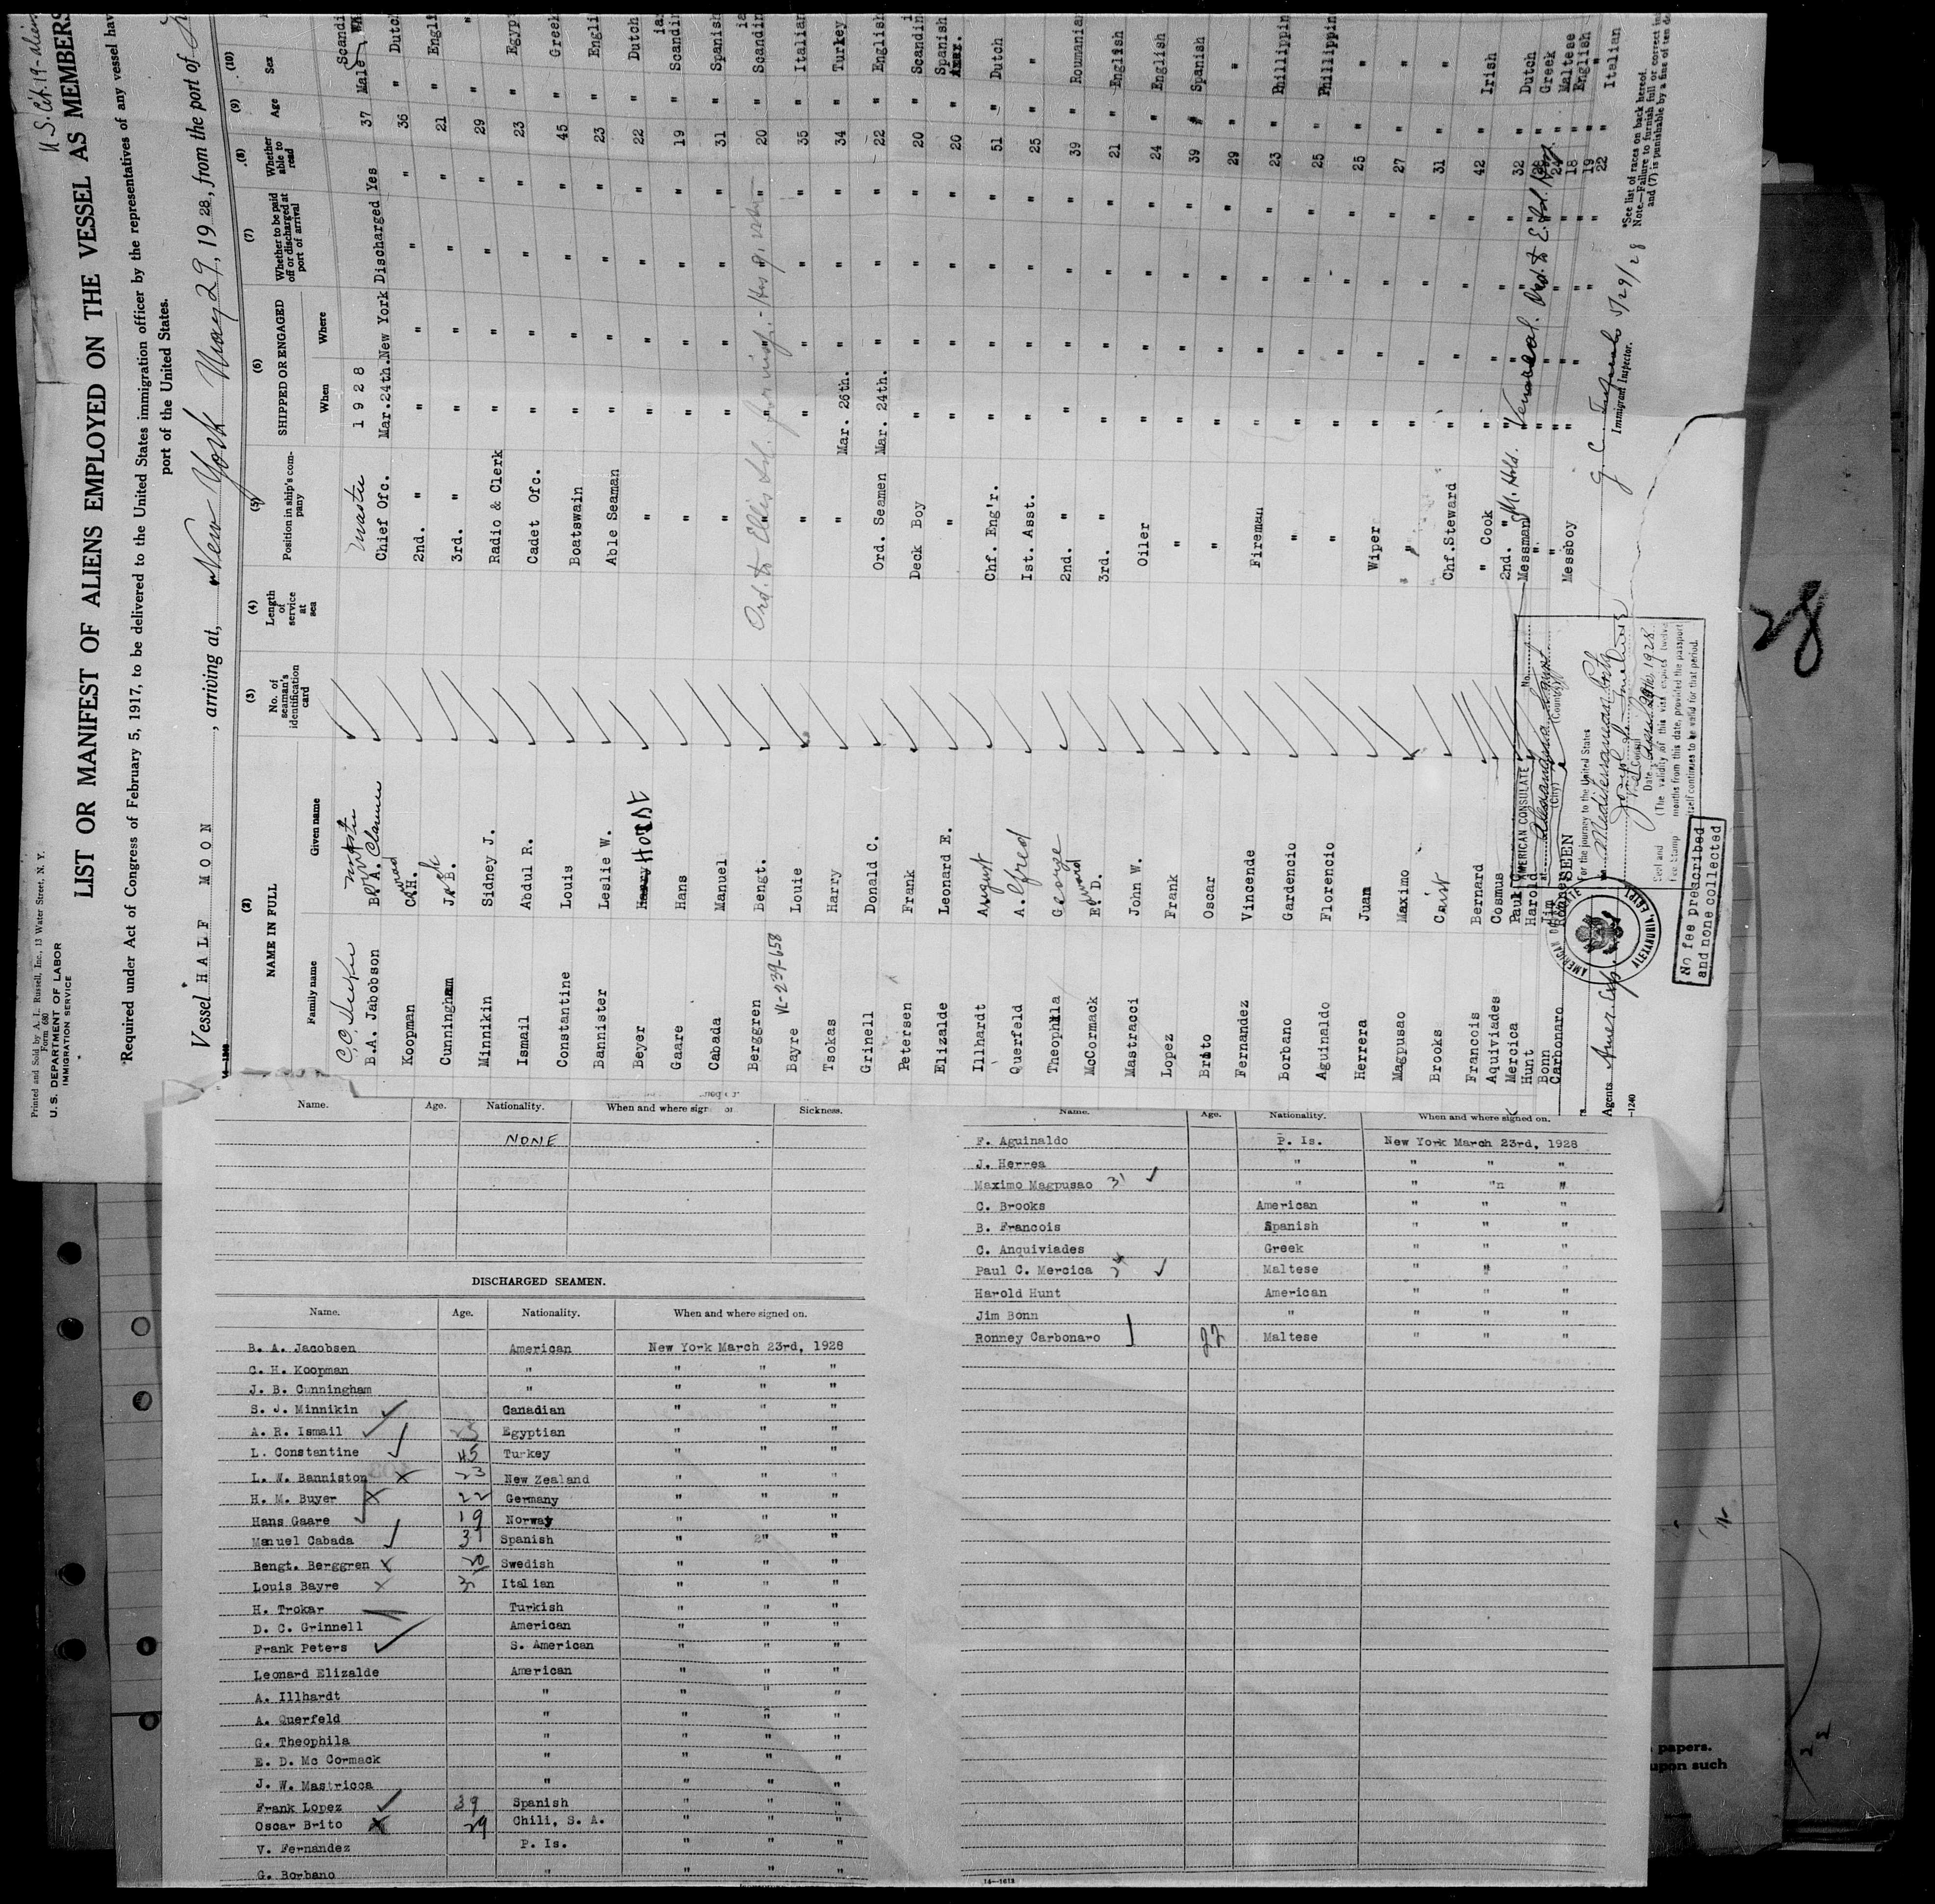 U.S. Cit. 19-alien
Printed and Sold by A. L. Russell, Inc., 13 Water Street, N. Y.
Form 680
U. S. DEPARTMENT OF LABOR
IMMIGRATION SERVICE
LIST OR MANIFEST OF ALIENS EMPLOYED ON THE VESSEL AS MEMBERS
Required under Act of Congress of February 5, 1917, to be delivered to the United States immigration officer by the representatives of any vessel hav
port of the United States.
Vessel HALF MOON, arriving at, New York May 29, 1928, from the port of
(2) (3) (4) (5) (6) (7) (8) (9) (10)
NAME IN FULL No. of seaman's identification card Length of service at sea Position in ship's company SHIPPED OR ENGAGED Whether to be paid off or discharged at port of arrival Whether able to read Age Sex
Family name Given name When Where
C.C. Master 37 Male Scandi
1928
B.A. Jabobson B. A. Chief Ofc. Mar. 24th. New York Discharged Yes
Koopman C.H. 2nd. " " " " " 36 " Dutc
Cunningham J.B. 3rd. " " " " " 21 " Engli
Minnikin Sidney J. Radio & Clerk " " " " 29 " "
Ismail Abdul R. Cadet Ofc. " " " " 23 " Egyp
Constantine Louis Boatswain " " " " 45 " Greek
Bannister Leslie W. Able Seaman " " " " 23 " Engli
Beyer Horst " " " " " 22 " Dutch
Gaare Hans " " " " " 19 " Scandin
Cabada Manuel " " " " " 31 " Spanish
Berggren Bengt. " " " " " 20 " Scandin
Bayre VL-239-658 Louie " " " " " 35 " Italian
Tsokas Harry " Mar. 26th. " " " 34 " Turkey
Grinell Donald C. Ord. Seamen Mar. 24th. " " " 22 " English
Petersen Frank Deck Boy " " " " 20 " Scandin
Elizalde Leonard E. " " " " " 20 " Spanish
Illhardt August Chf. Eng'r. " " " " 51 " Dutch
Querfeld A. Alfred Ist. Asst. " " " " 25 " "
Theophila George 2nd. " " " " " 39 " Roumania
McCormack E. D. 3rd. " " " " " 21 " English
Mastracci John W. Oiler " " " " 24 " English
Lopez Frank " " " " " 39 " Spanish
Brito Oscar " " " " " 29 " "
Fernandez Vincende Fireman " " " " 23 " Phillippin
Borbano Gardencio " " " " " 25 " Phillippin
Aguinaldo Florencio " " " " " 25 " "
Herrera Juan Wiper " " " " 27 " "
Magpusao Maximo " " " " " 31 " "
Brooks Chf. Steward " " " " 42 " Irish
Francois Bernard " Cook " " " " 32 " Dutch
Aquiviades Cosmus 2nd. " " " " " Greek
Mercica Paul Messman " " " " 24 " Maltese
Hunt Harold " " " " " 18 " English
Bonn Jim " " " " " 19 " "
Carbonaro Messboy " " " " 22 " Italian
Ord. to Ellis Isl.
AMERICAN CONSULATE No.
at Alexandria Egypt
(City) (Country)
SEEN
For the journey to the United States
Date 1928
(The validity of this visa expires twelve
months from this date, provided the passport
itself continues to be valid for that period.
Seal and
Fee Stamp
ALEXANDRIA, EGYPT
No fee prescribed
and none collected
Agents Amer Exp.
Immigrant Inspector.
5/29/28
*See list of races on back hereof.
Note.—Failure to furnish full or correct
and (7) is punishable by a fine of ten do
28
Name. Age. Nationality. When and where sign Sickness.
NONE
DISCHARGED SEAMEN.
Name. Age. Nationality. When and where signed on.
B. A. Jacobsen American New York March 23rd, 1928
C. H. Koopman " " " "
J. B. Cunningham " " " "
S. J. Minnikin Canadian " " "
A. R. Ismail 23 Egyptian " " "
L. Constantine 45 Turkey " " "
L. W. Banniston 23 New Zealand " " "
H. M. Buyer 22 Germany " " "
Hans Gaare 19 Norway " " "
Manuel Cabada 31 Spanish " " "
Bengt. Berggren 20 Swedish " " "
Louis Bayre 35 Italian " " "
H. Trokar Turkish " " "
D. C. Grinnell American " " "
Frank Peters S. American " " "
Leonard Elizalde American " " "
A. Illhardt " " " "
A. Querfeld " " " "
G. Theophila " " " "
E. D. Mc Cormack " " " "
J. W. Mastricca " " " "
Frank Lopez 39 Spanish " " "
Oscar Brito 29 Chili, S. A. " " "
V. Fernandez P. Is. " " "
G. Borbano " " " "
Name. Age. Nationality. When and where signed on.
F. Aguinaldo P. Is. New York March 23rd, 1928
J. Herrea " " " "
Maximo Magpusao 31 " " " "
C. Brooks American " " "
B. Francois Spanish " " "
C. Anquiviades Greek " " "
Paul C. Mercica 24 Maltese " " "
Harold Hunt American " " "
Jim Bonn " " " "
Ronney Carbonaro 22 Maltese " " "
papers.
upon such
14—1618